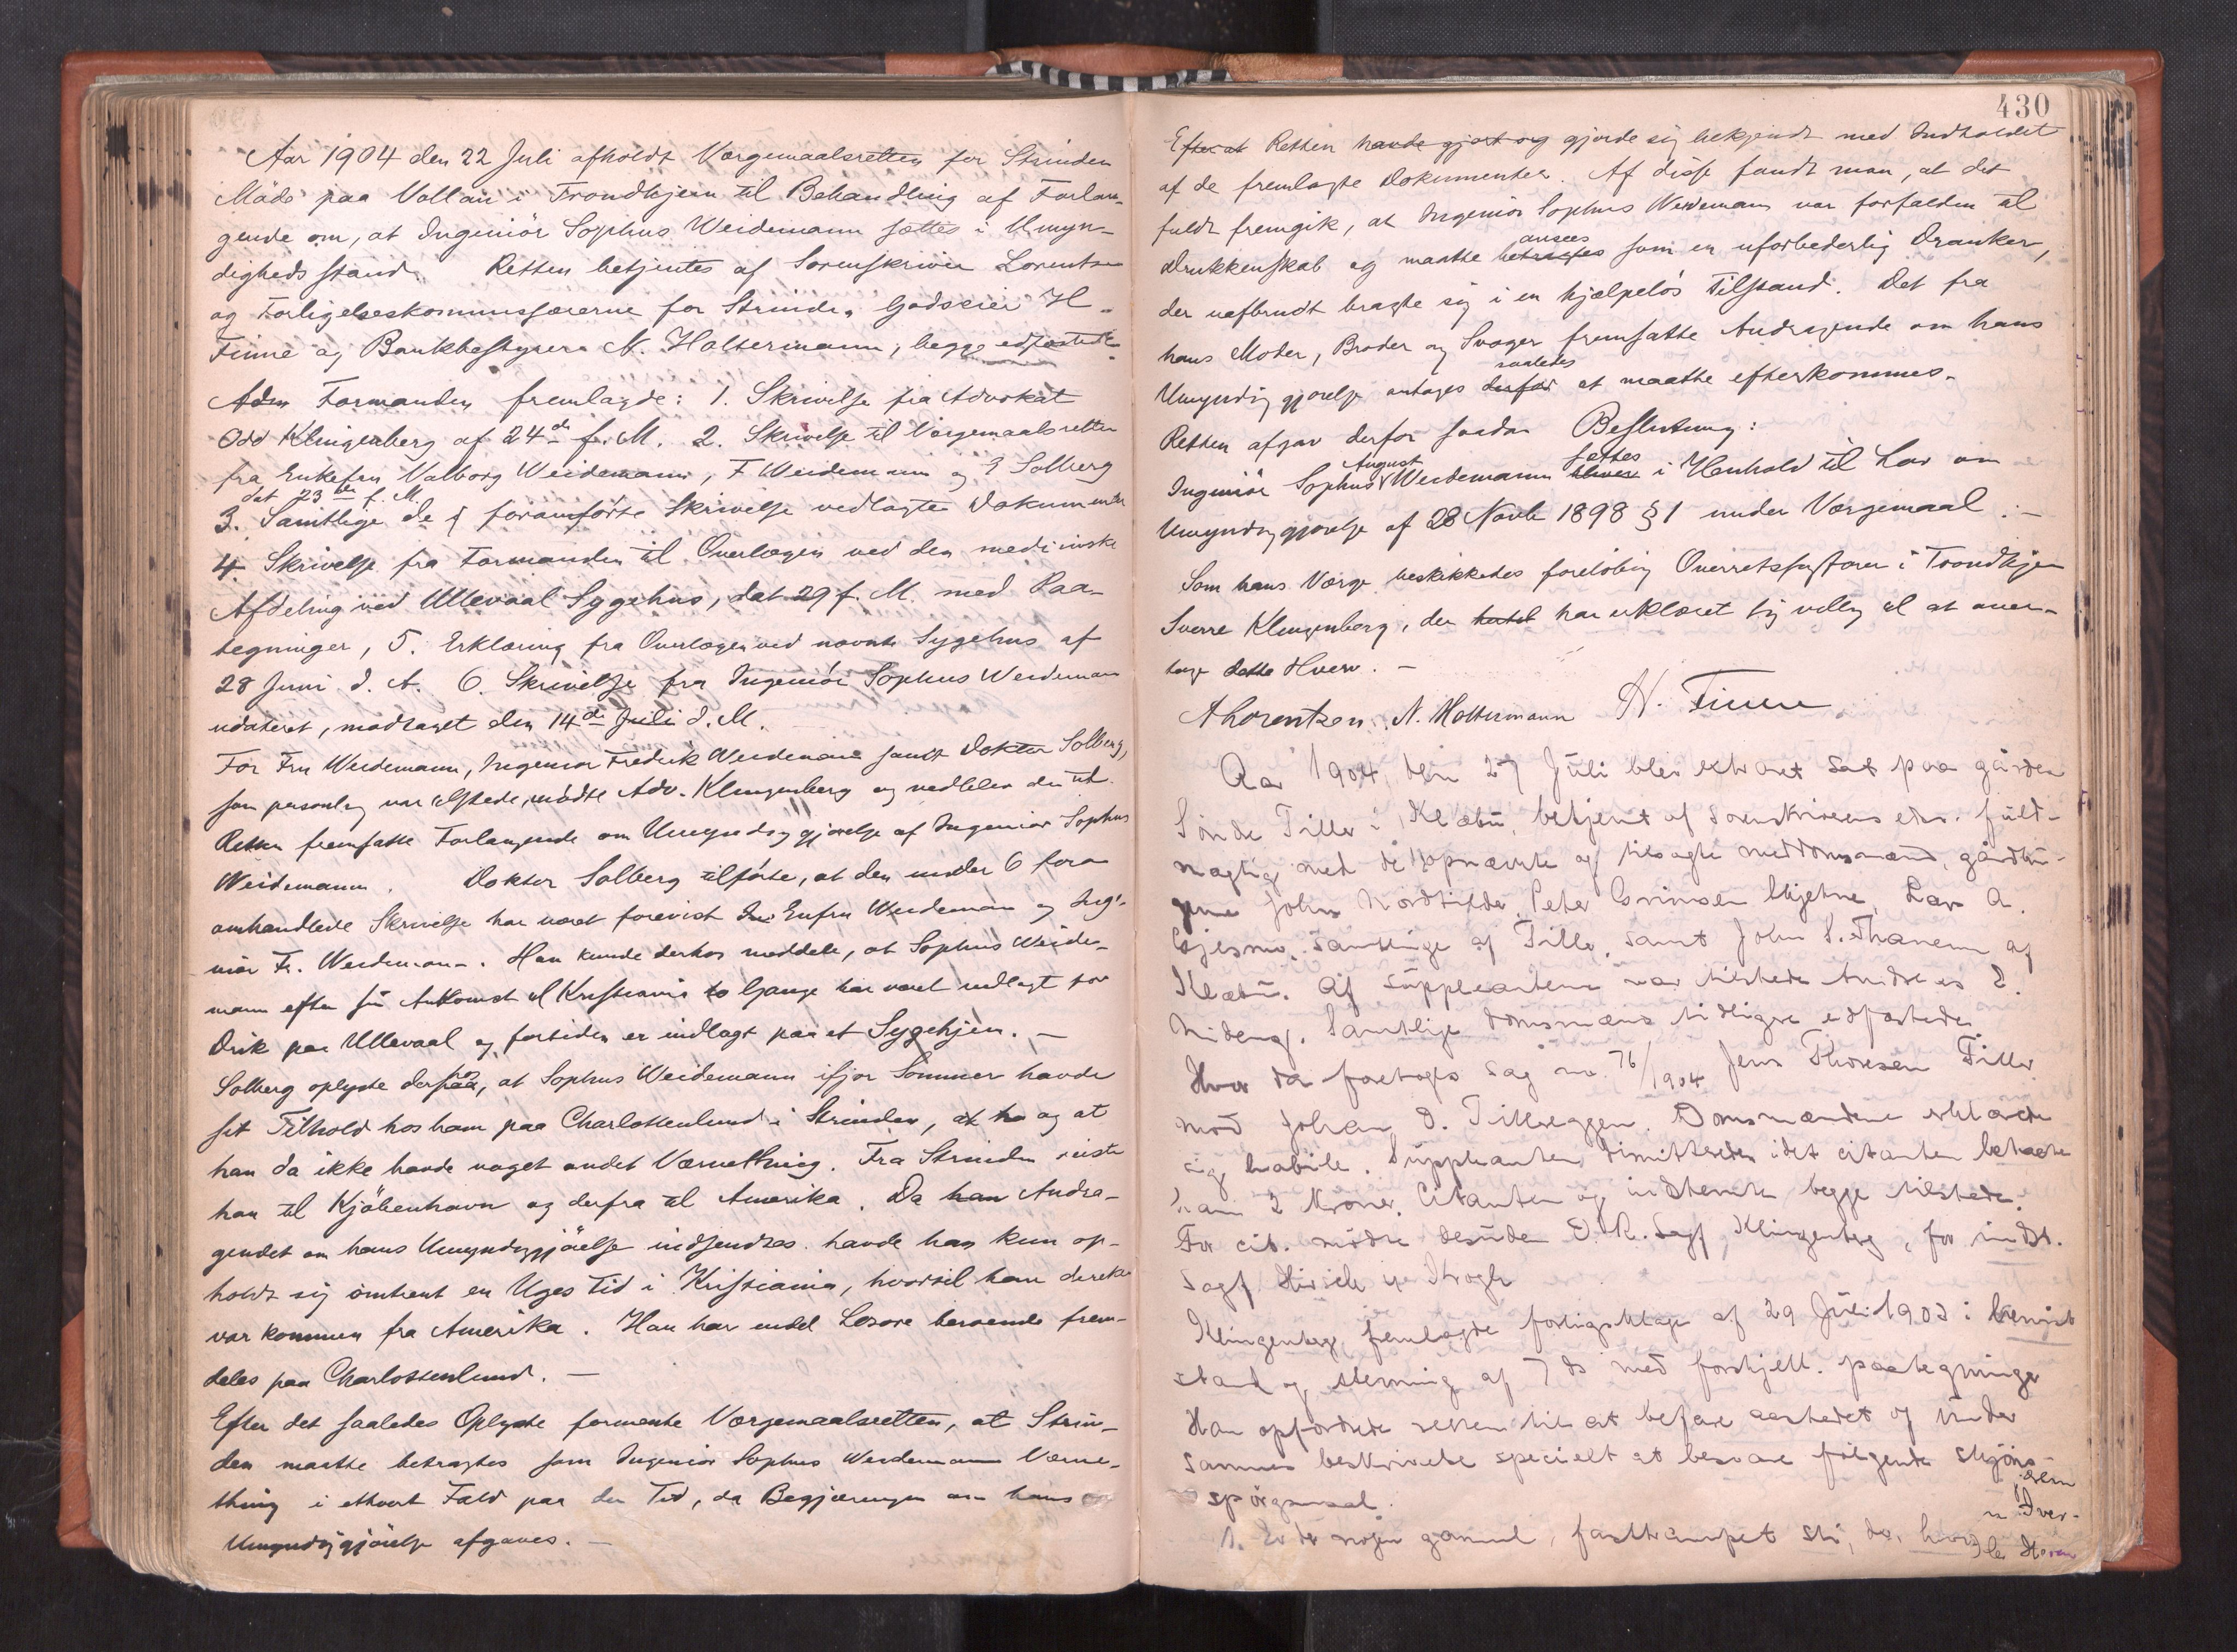 Aar 1904 den 22 Juli afholdt Værgemaalsretten for Strinden
Møde paa Vollan i Trondhjem til Behandling af Forlan-
gende om, at Ingeniør Sophus Weidemann sættes i Umyn-
digheds stand. Retten betjentes af Sorenskriver Lorentzen
og Forligelseskommissærerne for Strinden Godseier H.
Finne og Bankbestyrer N. Holtermann, begge edfæstede.
Adm Formanden fremlagde: 1. Skrivelse fra Advokat
Odd Klingenberg af 24de f. M. 2. Skrivelse til Værgemaalsretten
fra Enkefru Valborg Weidemann, F Weidemann og E Solberg
dat 23de f. M.
3. Samtlige de i foranførte Skrivelse vedlagte Dokumenter
4. Skrivelse fra Formanden til Overlægen ved den medicinske
Afdeling ved Ullevaal Sygehus, dat 29 f. M. med Paa-
tegninger, 5. Erklæring fra Overlægen ved nævnte Sygehus af
28 Juni d. A. 6. Skrivelse fra Ingeniør Sophus Weidemann
udateret, modtaget den 14de Juli d. M.
For Fru Weidemann, Ingeniør Fredrik Weidemann samt Doktor Solberg,
som personlig var tilstede, mødte Adv. Klingenberg og vedblev den til
Retten fremsatte Forlangende om Umyndiggjørelse af Ingeniør Sophus
Weidemann. Doktor Solberg tilførte, at den under 6 foran
omhandlede Skrivelse har været forevist Enkefru Weidemann og Inge-
niør Fr. Weidemann. Han kunde derhos meddele, at Sophus Weide-
mann efter sin Ankomst til Kristiania to Gange har været indlagt for
Drik paa Ullevaal og fortiden er indlagt paa et Sygehjem. -
Solberg oplyste derhos, at Sophus Weidemann ifjor Sommer havde
sit Tilhold hos ham paa Charlottenlund i Strinden, at han og at
han da ikke havde noget andet Værnething. Fra Strinden reiste
han til Kjøbenhavn og derfra til Amerika. Da han Andra-
gendet om hans Umyndiggjørelse indsendtes havde han kun op-
holdt sig omtrent en Uges Tid i Kristiania, hvortil han direkte
var kommen fra Amerika. Han har endel Løsøre beroende frem-
deles paa Charlottenlund. -
Efter det saaledes Oplyste formente Værgemaalsretten, at Strin-
den maatte betragtes som Ingeniør Sophus Weidemanns Værne-
thing i ethvert Fald paa den Tid, da Begjæringen om hans
Umyndiggjørelse afgaves. -
430
Efterat Retten havde gjort og gjorde sig bekjendt med Indholdet
af de fremlagte Dokumenter. Af disse fandt man, at det
fuldt fremgik, at Ingeniør Sophus Weidemann var forfalden til
ansees
Drukkenskab og maatte betragtes som en uforbederlig Dranker,
der uafbrudt bragte sig i en hjælpeløs Tilstand. Det fra
hans Moder, Broder og Svoger fremsatte Andragende om hans
saaledes
Umyndiggjørelse antages derfor at maatte efterkommes.
Retten afgav derfor saadan Beslutning:
August sættes
Ingeniør Sophus Weidemann bliver i Henhold til Lov om
Umyndiggjørelse af 28 Novb 1898 § 1 under Værgemaal. -
Som hans Værge beskikkedes foreløbig Overretssagfører i Trondhjem
Sverre Klingenberg, der hertil har erklæret sig villig til at over-
tage dette Hverv. -
A Lorentzen. N. Holtermann H. Finne
Aar 1904, den 27 Juli blev extraret sat paa gaarden
Søndre Tiller i Klæbu, betjent af sorenskriverens edsv. fuld-
mægtig med de opnævnte og tilsagte meddomsmænd, gårdbru-
gerne John Nordtiller, Peter Skjetne, Lars A.
Gjesmo, samtlige af Tiller, samt John S. Thanem af
Klæbu. Af suppleanterne var tilstede Andreas E.
Nideng. Samtlige domsmænd tidligere edfæstede.
Hvor da foretoges sag no 76/1904 Jens Thoresen Tiller
mod Johan O. Tillereggen. Domsmændene erklærede
sig habile. Suppleanten dimitteredes idet citanten betalte
ham 2 Kroner. Citanten og indstevnte begge tilstede.
For cit. mødte desuden O.R. Sagf. Klingenberg, for indst.
Sagf. Krogh
Klingenberg fremlagde forligsklage af 29 Juli 1903 i bevist
stand og stevning af 7 ds med forskjell. paategninger
Han opfordrede retten til at befare aastedet og under
sammes beskrivelse specielt at besvare følgende skjøns-
spørgsmaal.
1. Er der nogen gammel, fasttrampet sti, der